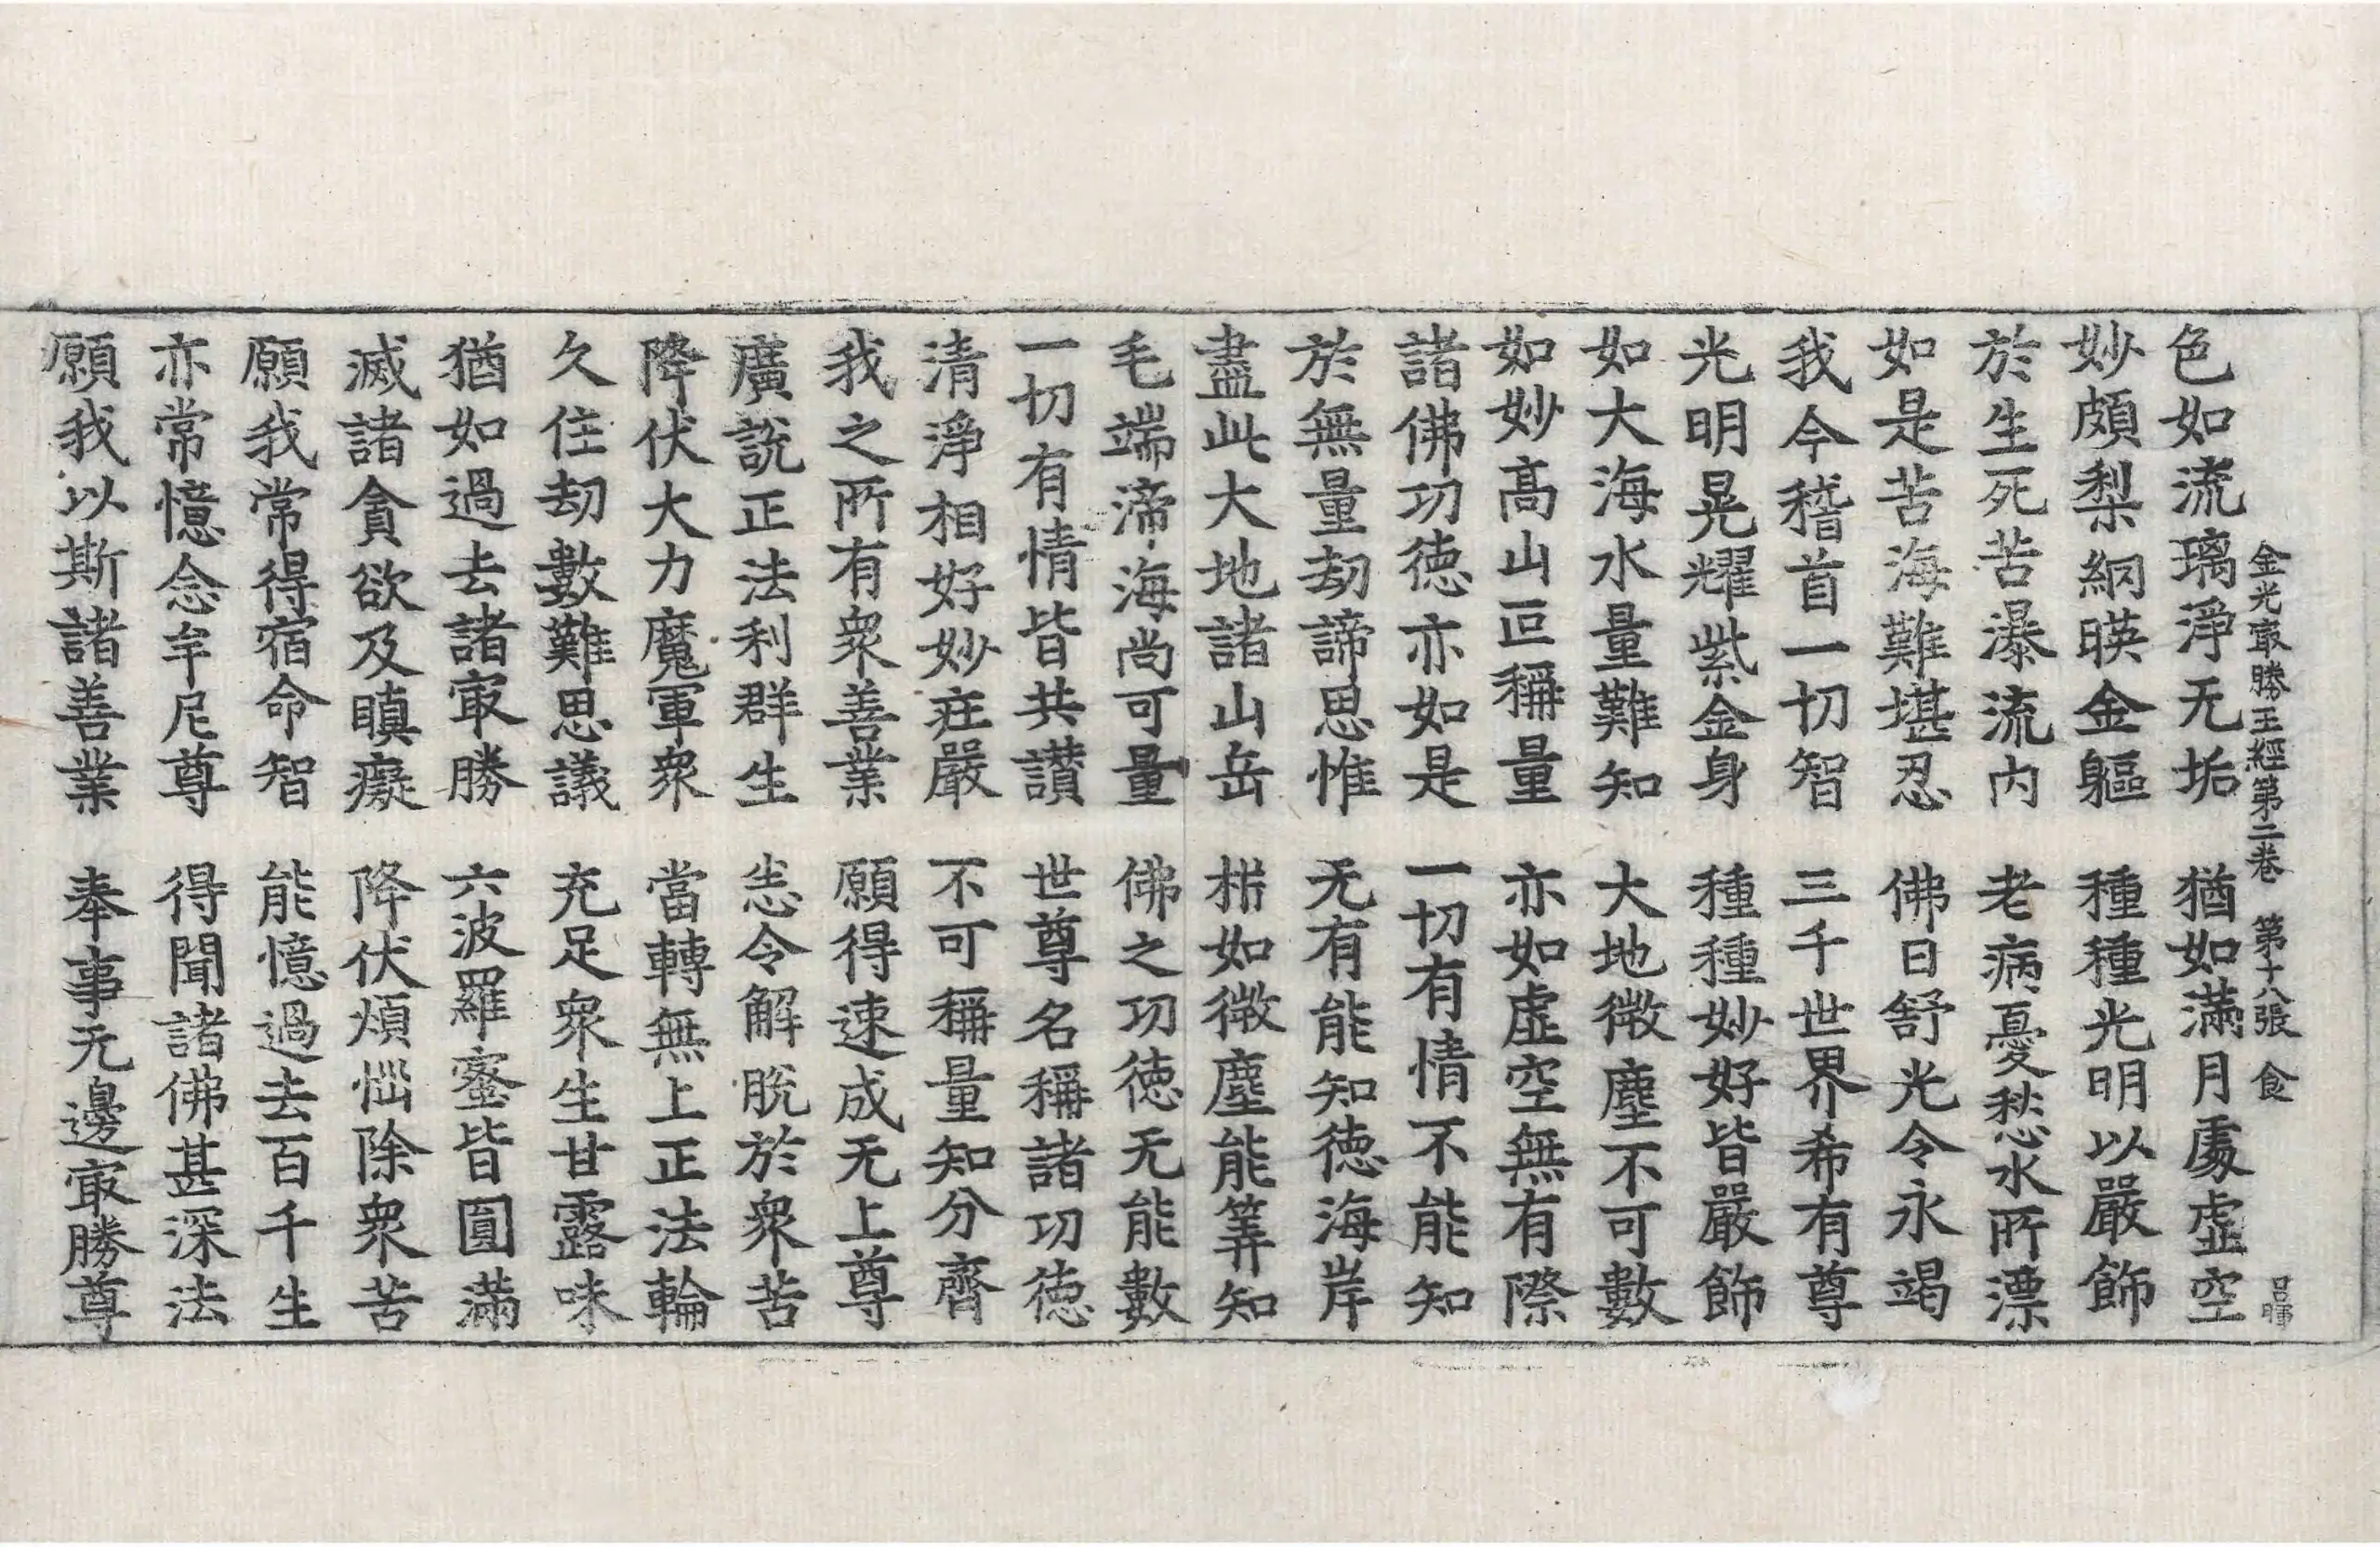 金光㝡勝王經第二卷　第十八張　食
色如流璃淨无垢　猶如滿月處虛空
妙頗梨網暎金軀　種種光明以嚴飾
於生死苦瀑流內　老病憂愁水所漂
如是苦海難堪忍　佛日舒光令永竭
我今稽首一切智　三千世界希有尊
光明晃耀紫金身　種種妙好皆嚴飾
如大海水量難知　大地微塵不可數
如妙高山叵稱量　亦如虛空無有際
諸佛功德亦如是　一切有情不能知
於無量劫諦思惟　无有能知德海岸
盡此大地諸山岳　析如微塵能筭知
毛端渧海尚可量　佛之功德无能數
一切有情皆共讃　世尊名稱諸功德
清淨相好妙莊嚴　不可稱量知分齊
我之所有衆善業　願得速成无上尊
廣說正法利群生　悉令解脫於衆苦
降伏大力魔軍衆　當轉無上正法輪
久住劫數難思議　充足衆生甘露味
猶如過去諸㝡勝　六波羅蜜皆圓滿
滅諸貪欲及瞋癡　降伏煩惱除衆苦
願我常得宿命智　能憶過去百千生
亦常憶念牟尼尊　得聞諸佛甚深法
願我以斯諸善業　奉事无邊㝡勝尊